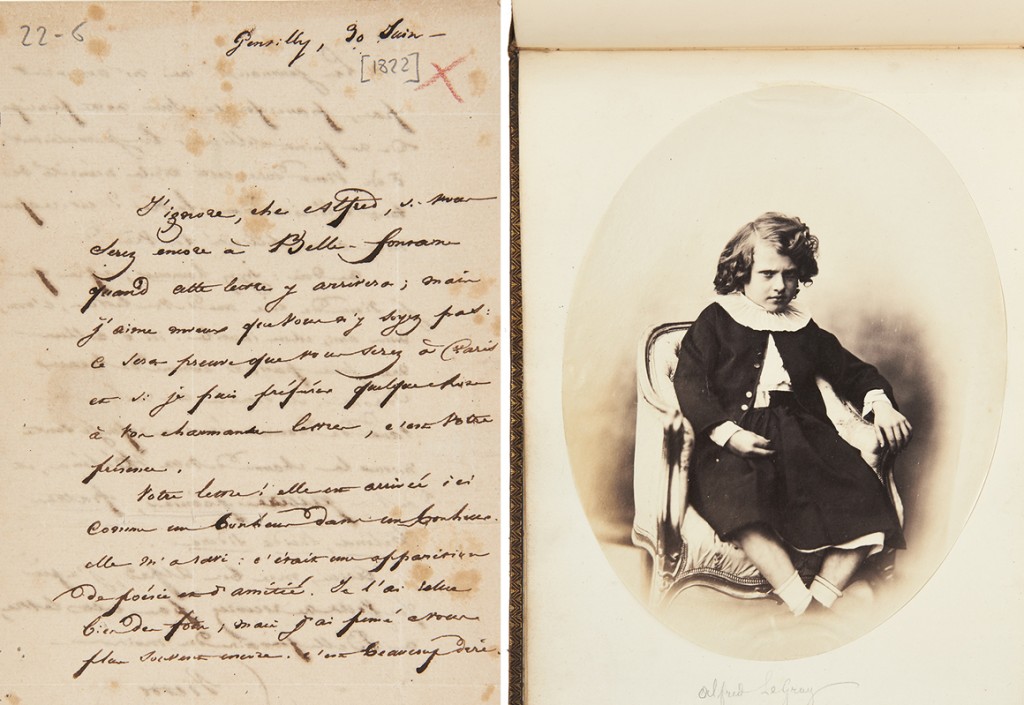 22-6
Gentilly, 30 Juin -
[1822]
J'ignore, cher Alfred, si vous
serez encore à Belle-fontaine
quand cette lettre y arrivera ; mais
j'aime mieux que vous n'y soyez pas :
ce sera preuve que vous serez à Paris
et si je puis préférer quelque chose
à vos charmantes lettres, c'est votre
présence.
Votre lettre ! elle est arrivée ici
comme un bonheur dans un bonheur.
elle m'a ravi : c'était une apparition
de poésie et d'amitié. Je l'ai relue
bien des fois, mais j'ai pensé à vous
plus souvent encore. c'est beaucoup dire.
Alfred Le Gray